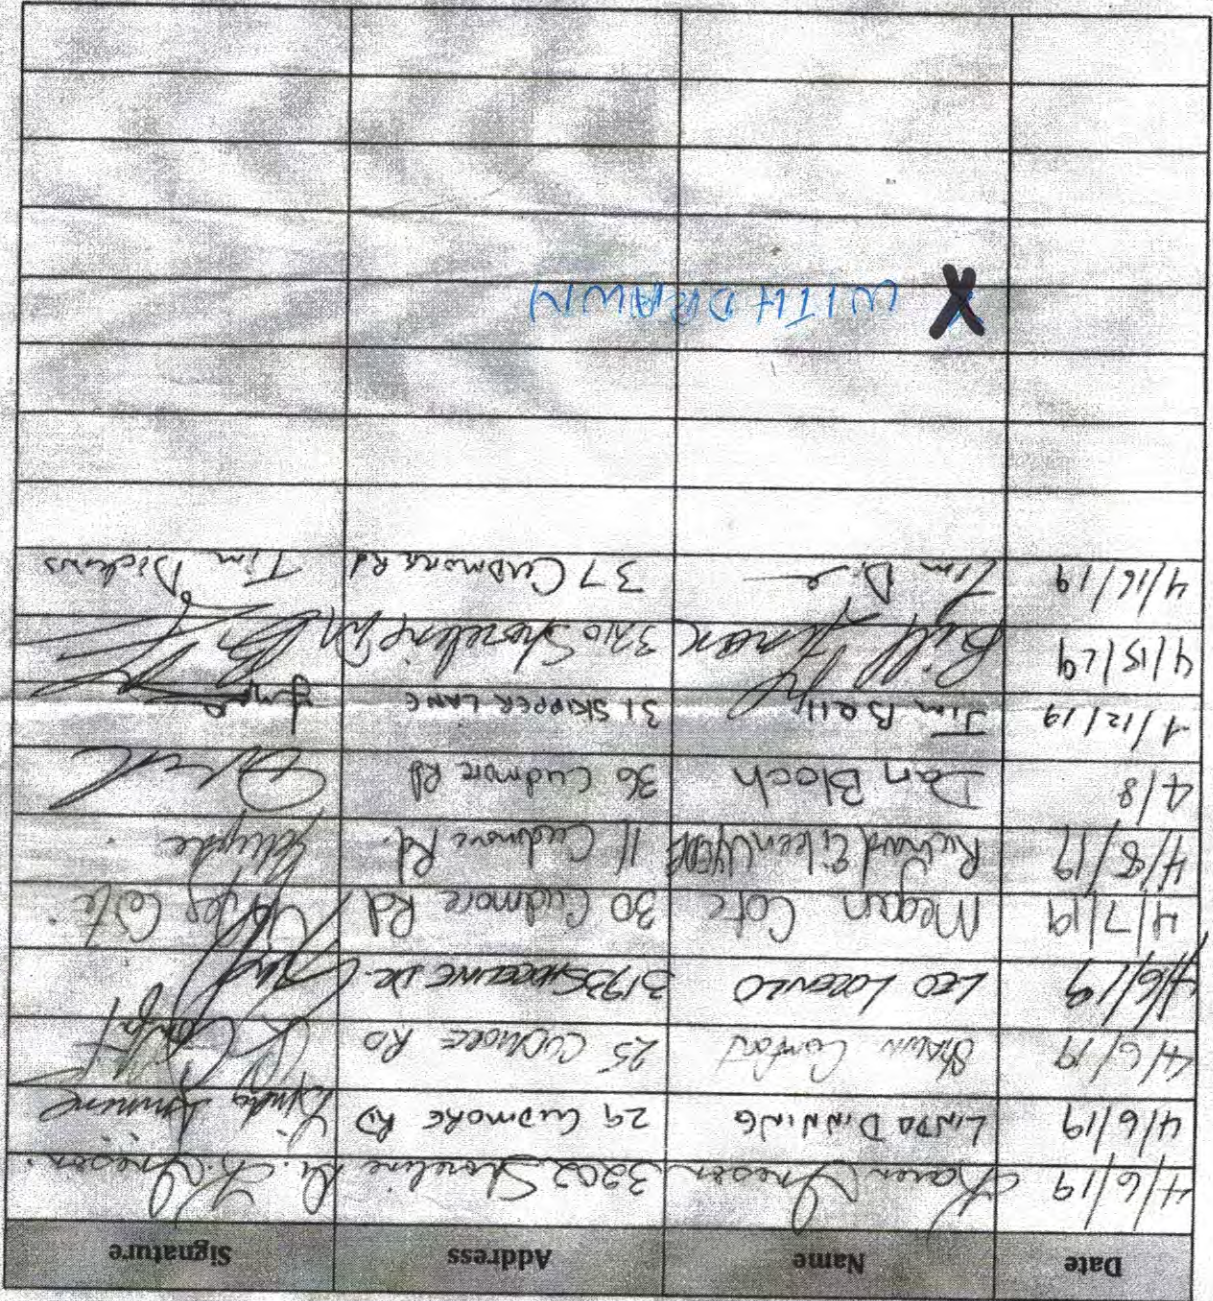 Date Name Address Signature
4/6/19 Karen Greson 3202 Shoreline Dr. K. Greson.
4/6/19 LINDA DINNING 29 CUDMORE RD Linda Dinning
4/6/19 SHAWN Comfort 25 CUDMORE RD
4/6/19 LEO LORENZO 3193 SHORELINE DR.
4/7/19 Megan Cote 30 Cudmore Rd Cote
4/8/19 Richard 11 Cudmore Rd.
4/8 Dan Bloch 36 Cudmore Rd
4/12/19 Jim Bell 31 SKIPPER LANE
4/15/19 Bill 3210 Shoreline
4/16/19 Tim D 37 Cudmore Rd Tim Dickens
X WITHDRAWN